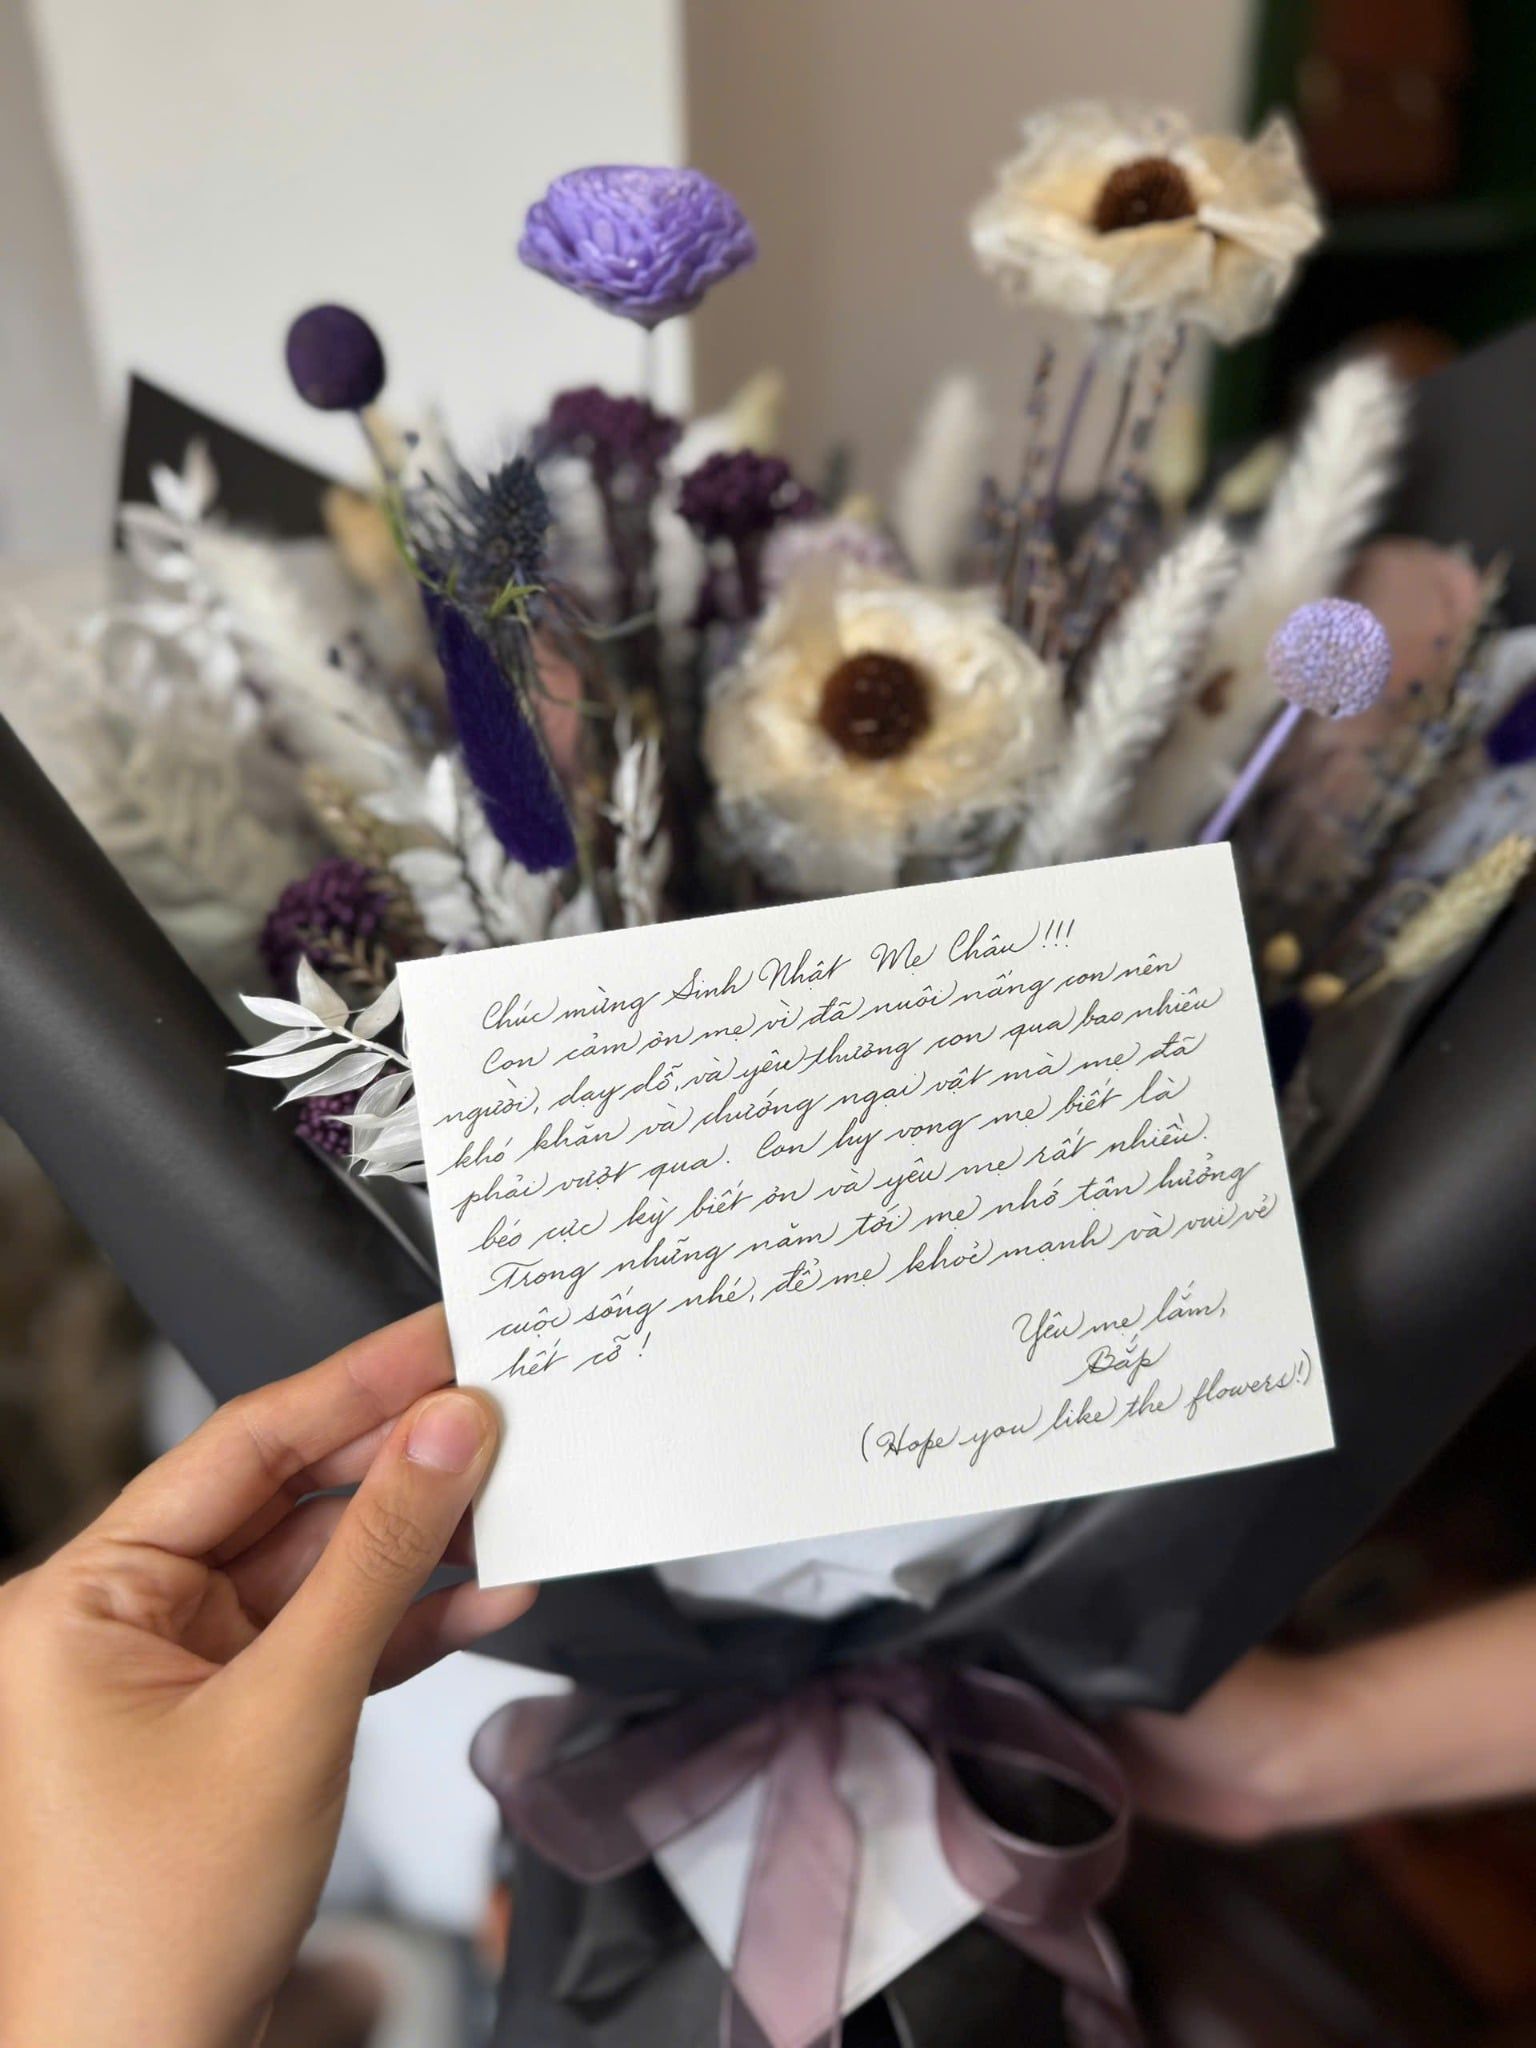 Chúc mừng Sinh Nhật Mẹ Châu!!!
Con cảm ơn mẹ vì đã nuôi nấng con nên
người, dạy dỗ, và yêu thương con qua bao nhiêu
khó khăn và chướng ngại vật mà mẹ đã
phải vượt qua. Con hy vọng mẹ biết là
béo cực kỳ biết ơn và yêu mẹ rất nhiều.
Trong những năm tới mẹ nhớ tận hưởng
cuộc sống nhé, để mẹ khoẻ mạnh và vui vẻ
hết cỡ!
Yêu mẹ lắm,
Bắp
(Hope you like the flowers!)